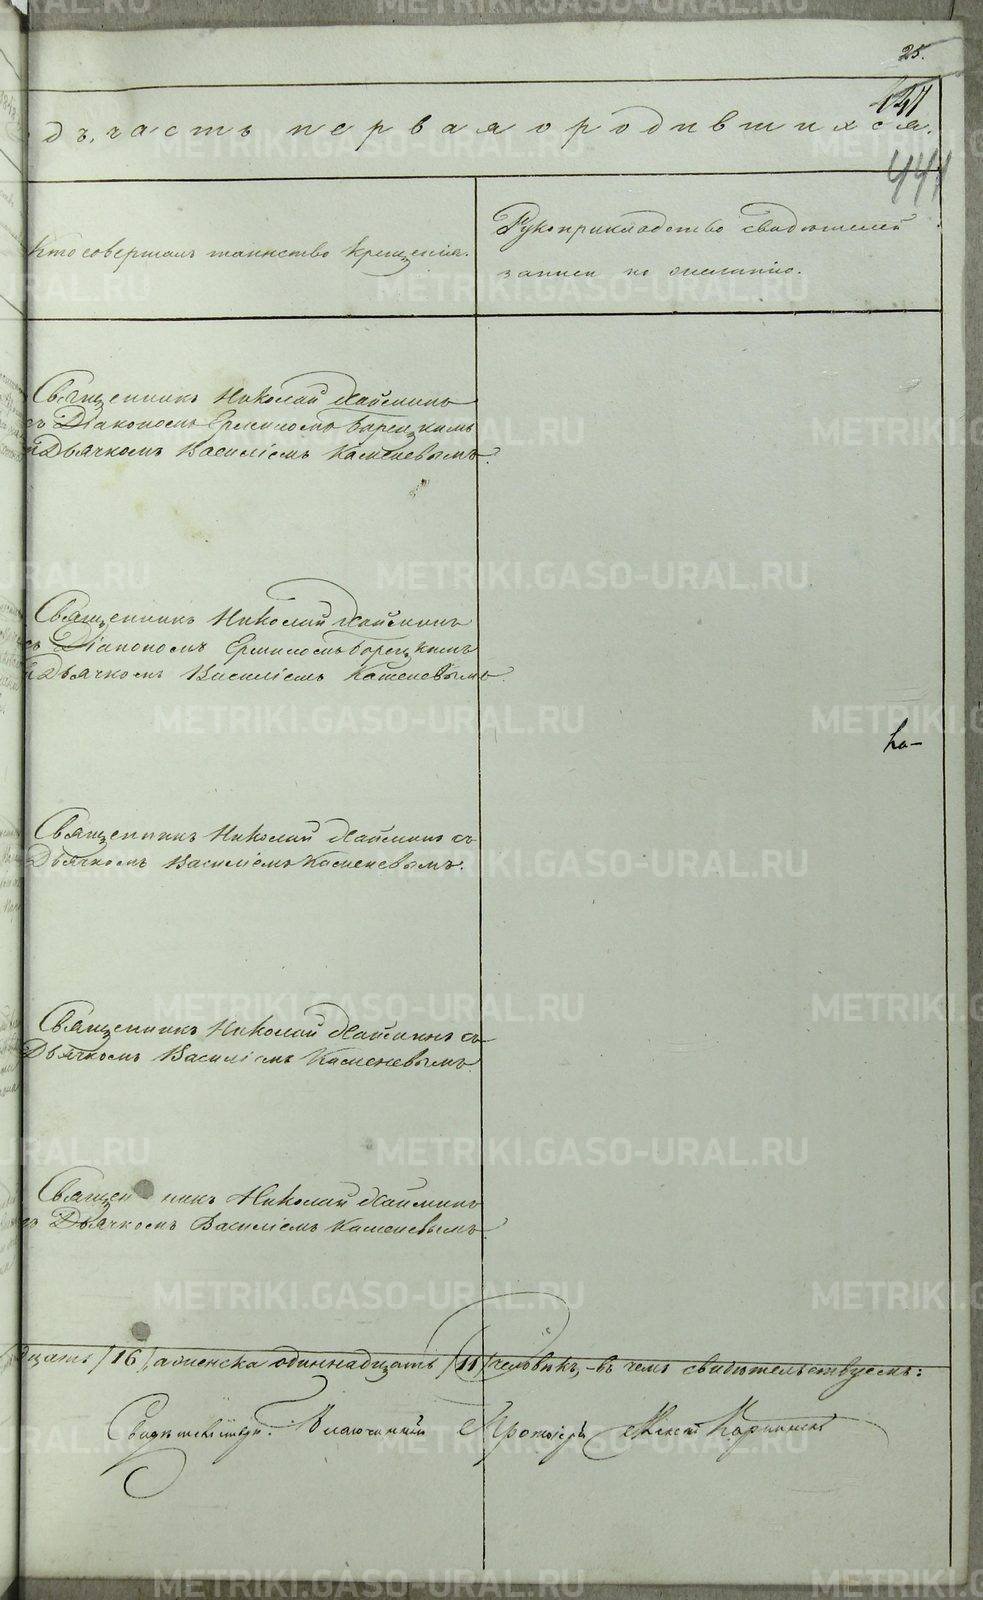 25.
447
441
дъ, часть первая о родившихся.
Кто совершалъ таинство крещенія.
Рукоприкладство свидѣтелей
записи по желанію.
Священникъ Николай
съ Діакономъ Ермиломъ Борецкимъ
и Дьячкомъ Василіемъ Каменевымъ.
Священникъ Николай
съ Діакономъ Ермиломъ Борецкимъ
и Дьячкомъ Василіемъ Каменевымъ.
Священникъ Николай съ
Дьячкомъ Василіемъ Каменевымъ.
Священникъ Николай съ
Дьячкомъ Василіемъ Каменевымъ.
Священникъ Николай
съ Дьячкомъ Василіемъ Каменевымъ.
дцать /16/, а женска одиннадцать /11/ человѣкъ, въ чемъ свидѣтельствуемъ:
Благочинный Протоіерей
METRIKI.GASO-URAL.RU